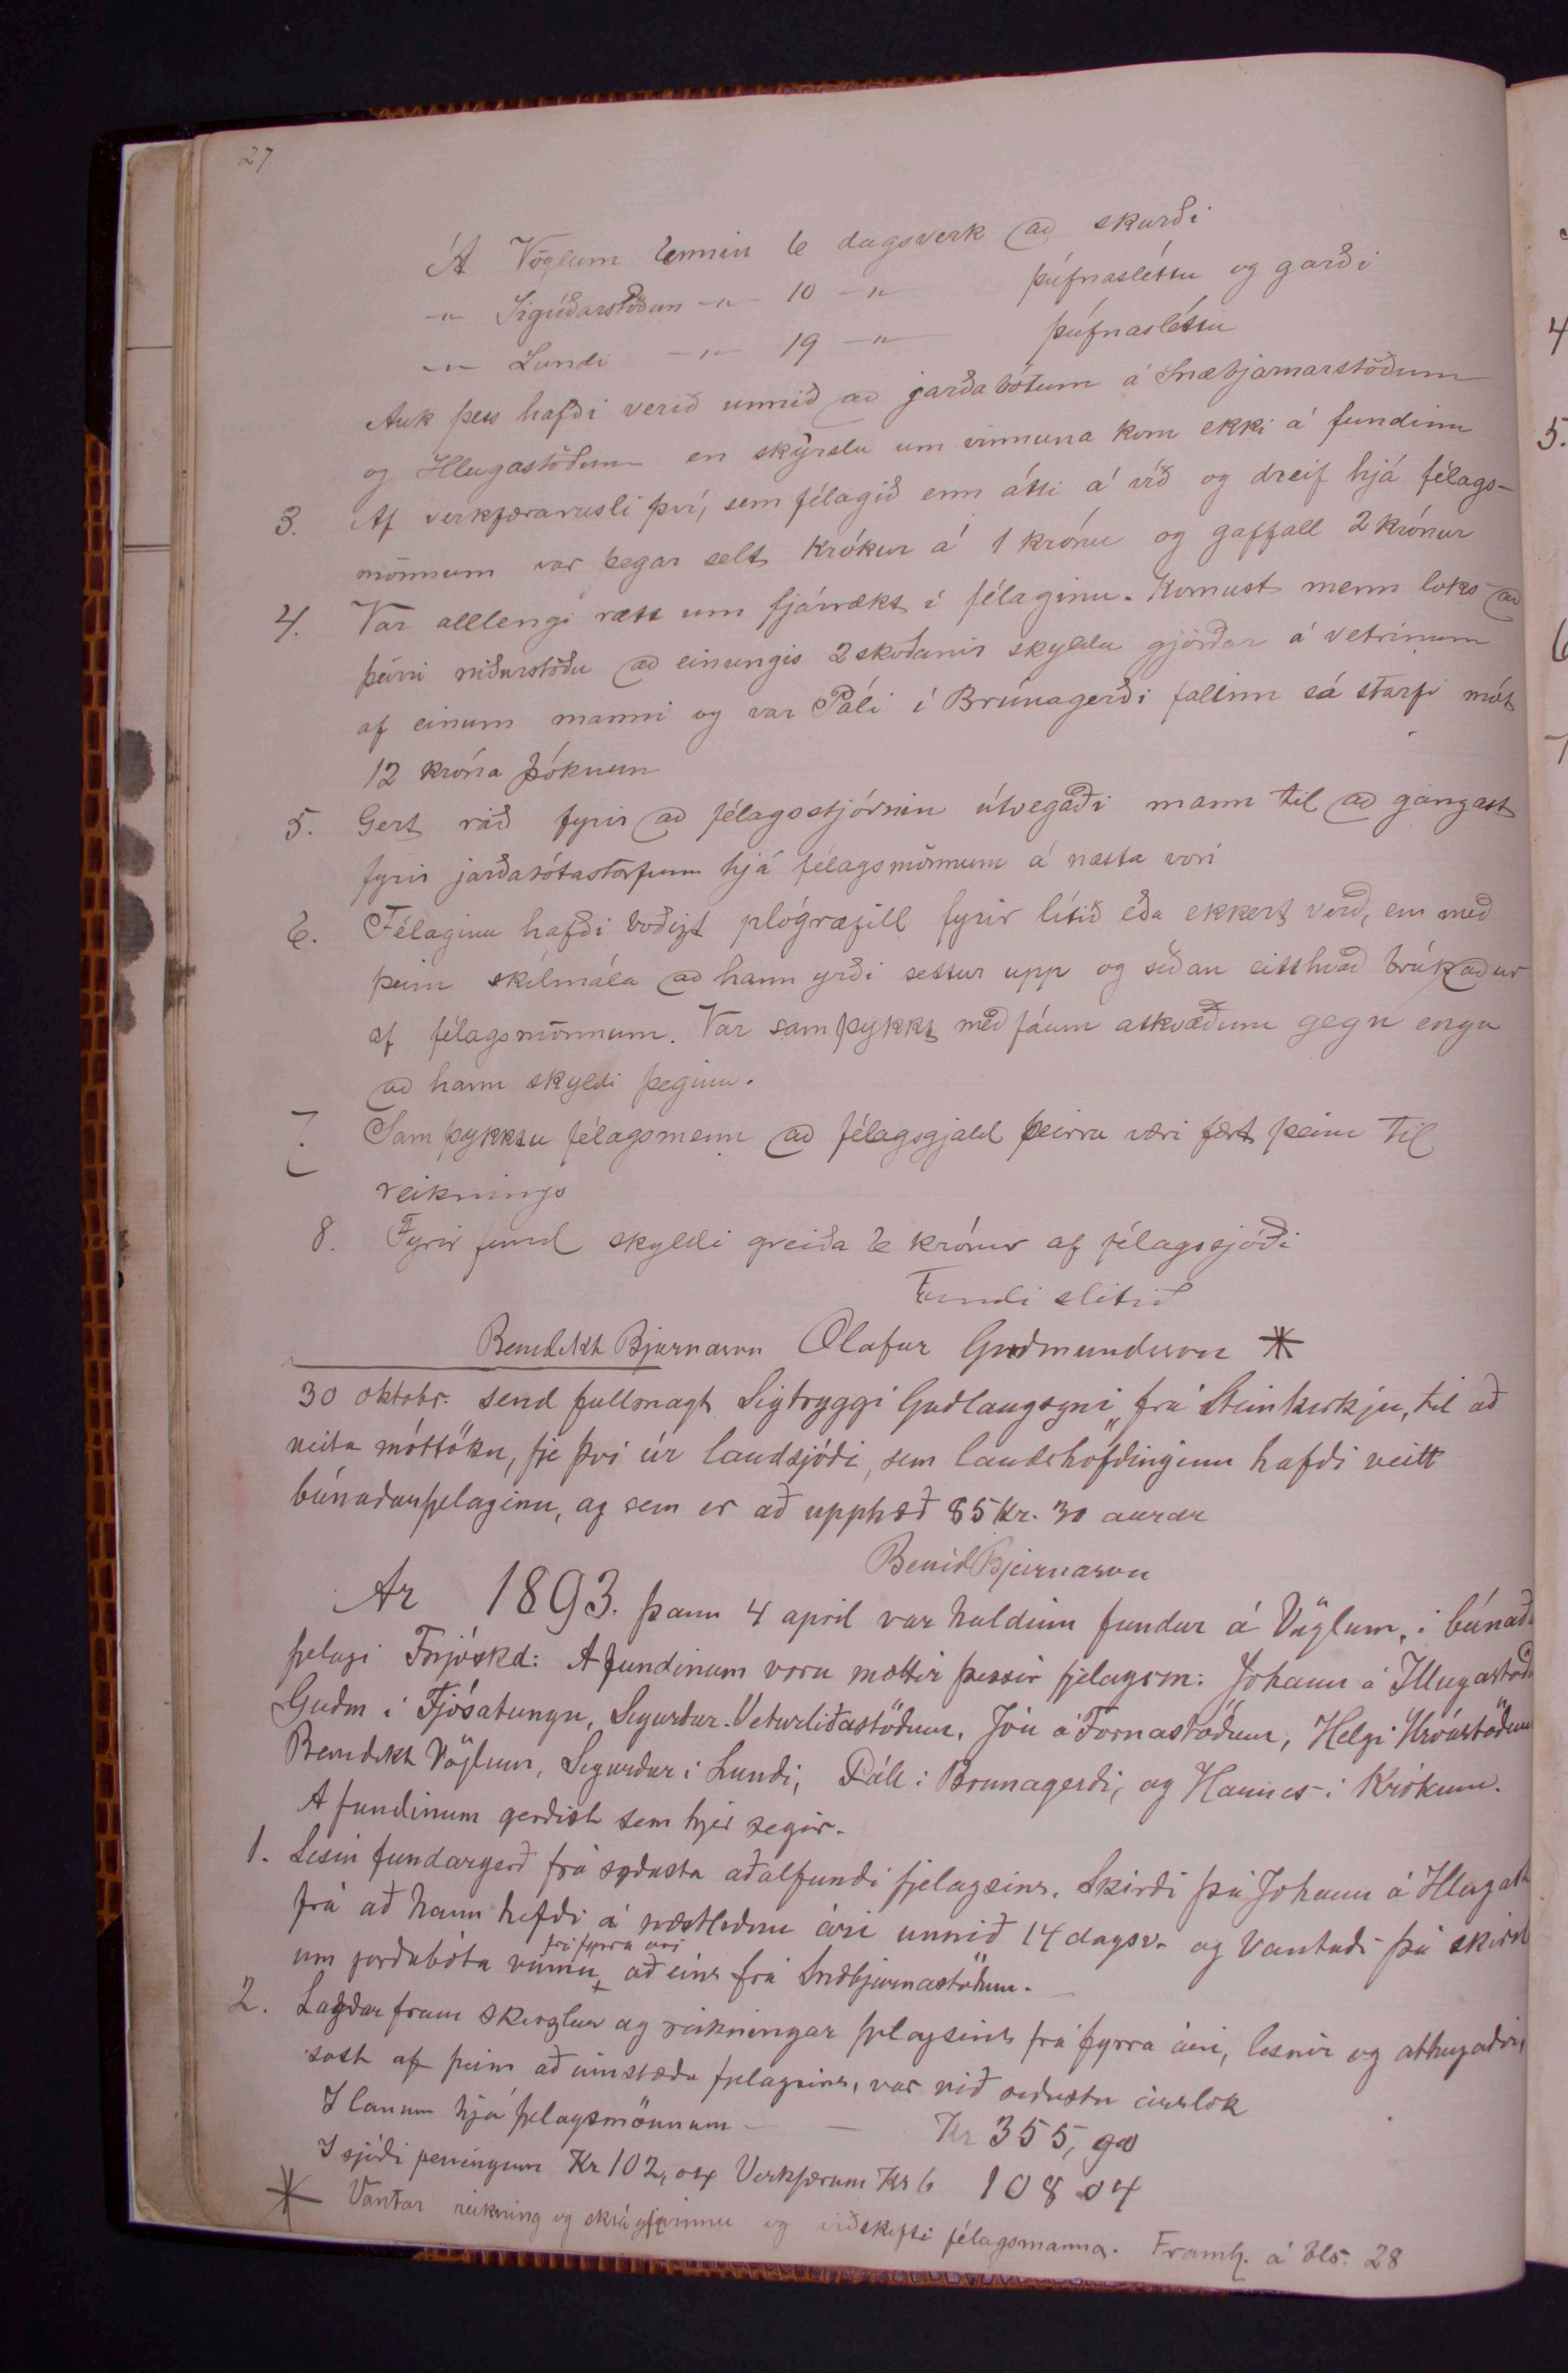 27
Á Vöglum unnin 6 dagsverk að skurði
-"- Sigríðarstöðum -"- 10 -"- þúfnasléttu og garði
-"- Lundi -"- 19 -"- þúfnasléttu
Auk þess hafði verið unnið að jarðabótum á Snæbjarnarstöðum
og Illugastöðum en skýrslu um vinnuna kom ekki á fundinn
3. Af verkfærarusli því, sem félagið enn átti á víð og dreif hjá félags-
mönnum var þegar selt Krókur á 1 krónu og gaffall 2 krónur
4. Var alllengi rætt um fjárrækt í félaginu. Komust menn loks að
þeirri niðurstöðu að einungis 2 skoðanir skyldu gjörðar á vetrinum
af einum manni og var Páli í Brúnagerði falinn sá starfi mót
12 króna þóknun
5. Gert ráð fyrir að félagsstjórnin útvegaði mann til að gangast
fyrir jarðabótastörfum hjá félagsmönnum á næsta vori
6. Félaginu hafði boðizt plógræfill fyrir lítið eða ekkert verð, en með
þeim skilmála að hann yrði settur upp og síðan eitthvað brúkaður
af félagsmönnum. Var samþykkt með fáum atkvæðum gegn engu
að hann skyldi þeginn.
7. Samþykktu félagsmenn að félagsgjald þeirra væri fært þeim til
reiknings
8. Fyrir fund skyldi greiða 6 krónur af félagssjóði
Fundi slitið
Benedikt Bjarnarson Olafur Guðmundsson *
30 oktobr. send fullmagt Sigtryggi Guðlaugsyni frá Steinkirkju, til að
veita móttöku, fje því úr landsjóði, sem landshöfðinginn hafði veitt
búnaðarfjelaginu, og sem er að upphæð 85 Kr. 30 aurar
Benid Bjarnarson
Ar 1893. þann 4 april var haldinn fundur á Vöglum, i búnaða
fjelagi Fnjóskd: A fundinum voru mættir þessir fjelagsm: Johann á Illugastöðu
Guðm i Fjósatungu, Sigurður Veturliðastöðum, Jón á Fornastöðum, Helgi Hróastöðum
Benedikt Vöglum, Sigurður i Lundi, Páll i Brunagerði, og Hannes i Krókum.
A fundinum gerðist sem hjer segir.
1. Lesin fundargerð frá syðasta aðalfundi fjelagsins. Skirði þá Johann á Illugast
frá að hann hefði á næstliðnu ári unnið 14 dagsv. og vantaði þá skirsl
frá fyrra ári
um jarðabóta vinnu + að eins frá Snæbjarnastöðum.
2. Lagðar fram skirzlur og reikningar fjelagsins frá fyrra ári, lesnir og athugaðir,
sást af þeim að innstæða fjelagsins, var við siðustu árslok
I lanum hjá fjelagsmönnum - - Kr 355,90
I sjóði peningum Kr 102,04 Verkfærum Kr 6 108 04
* Vantar reikning og skrá yfir vinnu og viðskifti félagsmanna. Framh. á bls. 28